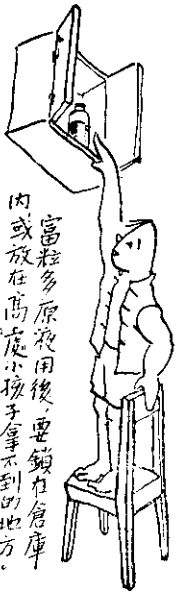 富粒多原液用後，要鎖在倉庫
內或放在高處小孩子拿不到的地方。